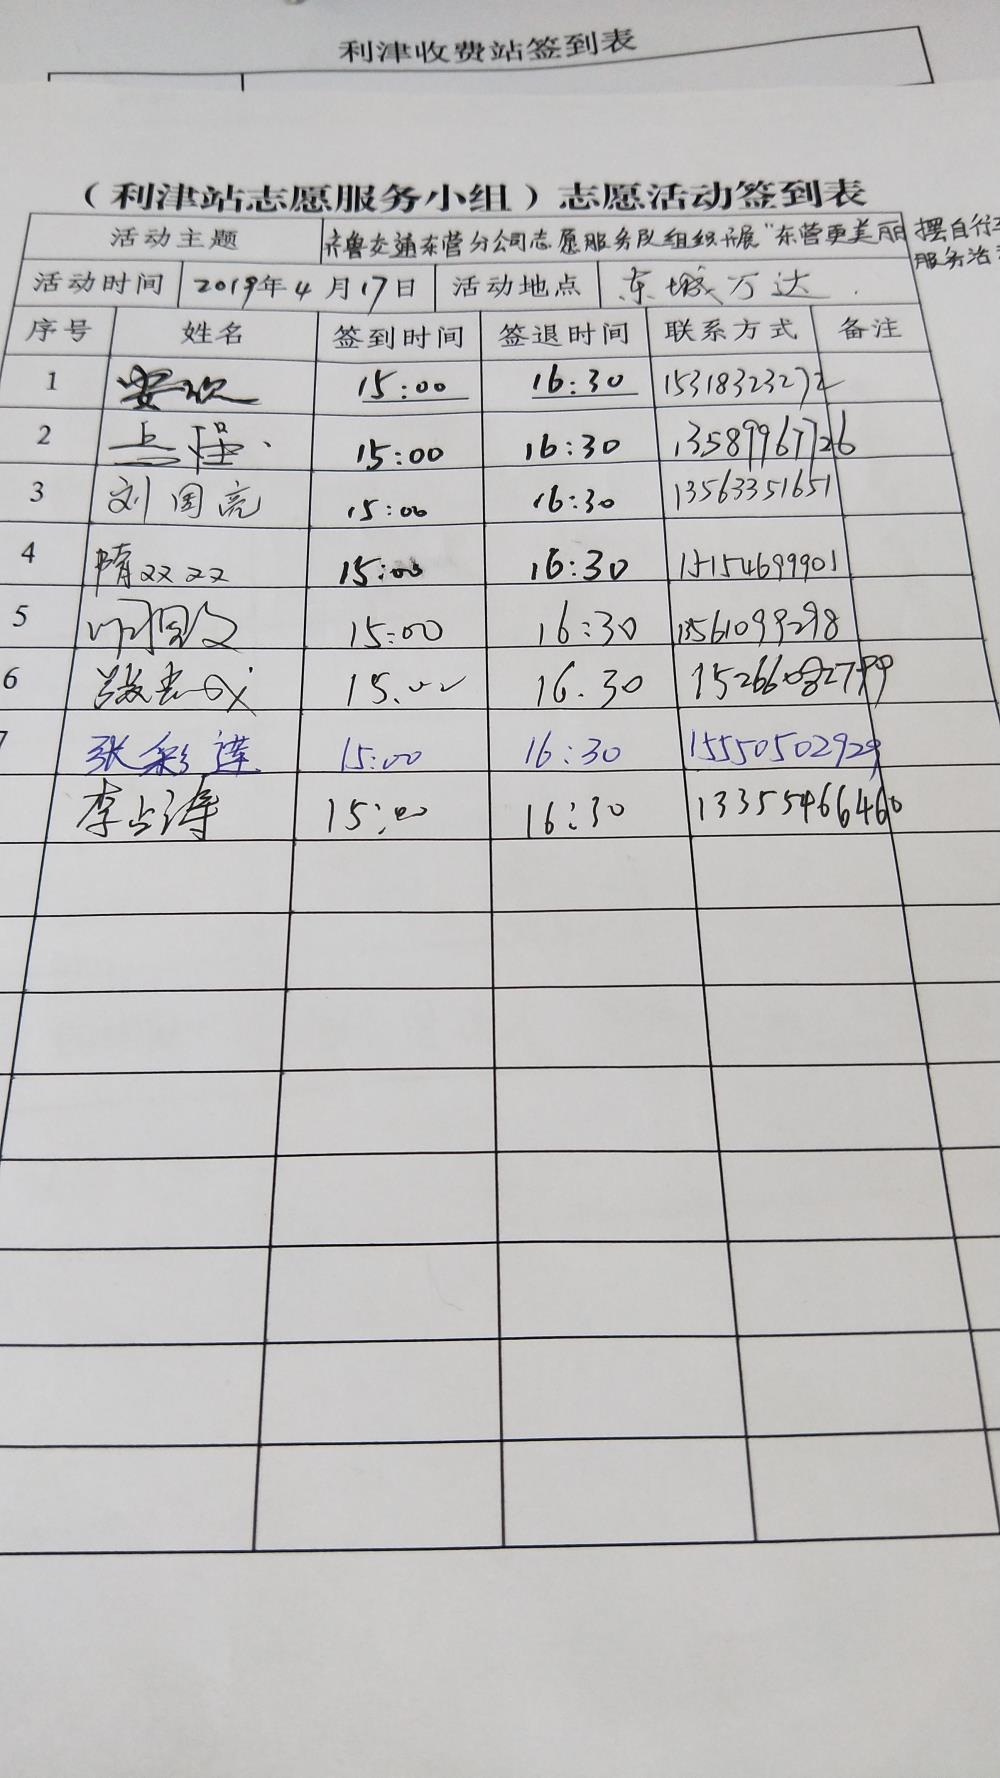 利津收费站签到表
（利津站志愿服务小组）志愿活动签到表
活动主题 齐鲁交通东营分公司志愿服务队组织开展"东营更美丽 摆自行车
服务活
活动时间 2019年4月17日 活动地点 东城万达
序号 姓名 签到时间 签退时间 联系方式 备注
1 安欣 15:00 16:30 15318323272
2 15:00 16:30 13589967726
3 刘国亮 15:00 16:30 13563351651
4 隋双双 15:00 16:30 15154699901
5 15:00 16:30 13561099298
6 15:00 16:30 15266082799
7 张彩莲 15:00 16:30 15550502929
李占涛 15:00 16:30 13355466460